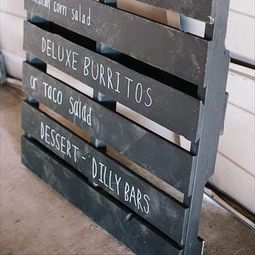 corn salad
DELUXE BURRITOS
or Taco Salad
DESSERT - DILLY BARS